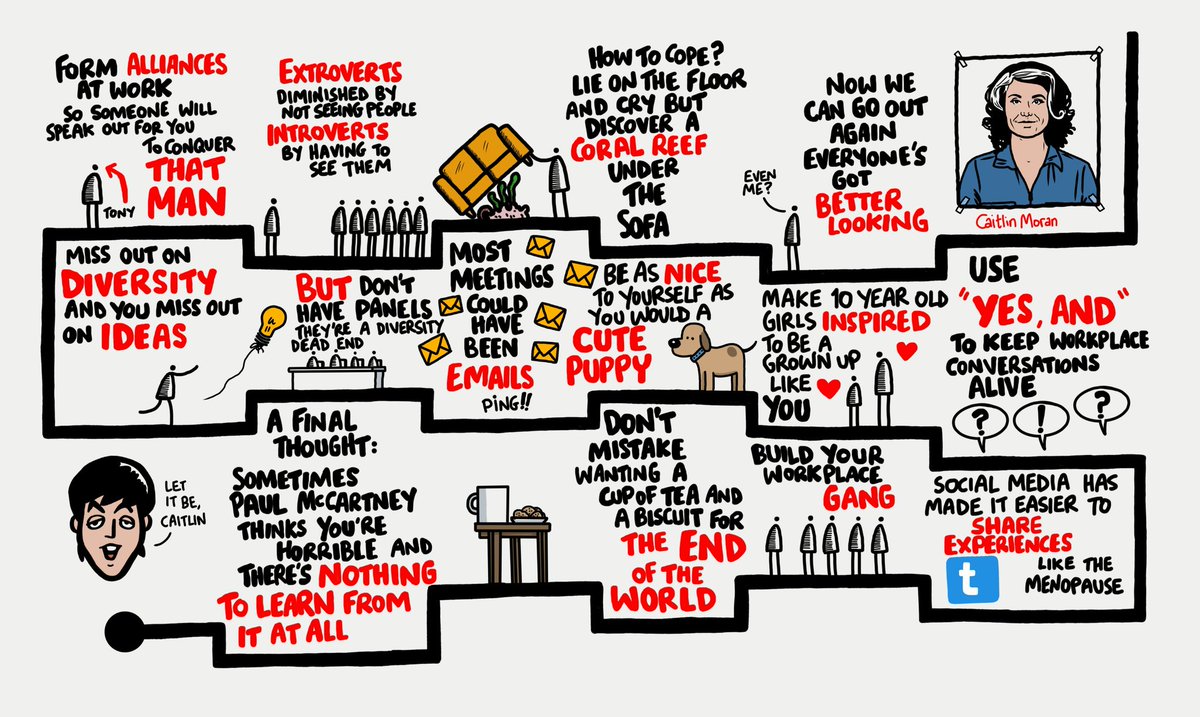 Caitlin Moran
NOW WE
CAN GO OUT
AGAIN
EVERYONE'S
GOT
BETTER
LOOKING
EVEN
ME?
HOW TO COPE?
LIE ON THE FLOOR
AND CRY BUT
DISCOVER A
CORAL REEF
UNDER
THE
SOFA
EXTROVERTS
DIMINISHED BY
NOT SEEING PEOPLE
INTROVERTS
BY HAVING TO
SEE THEM
FORM ALLIANCES
AT WORK
SO SOMEONE WILL
SPEAK OUT FOR YOU
TO CONQUER
THAT
MAN
TONY
MISS OUT ON
DIVERSITY
AND YOU MISS OUT
ON IDEAS
BUT DON'T
HAVE PANELS
THEY'RE A DIVERSITY
DEAD END
MOST
MEETINGS
COULD
HAVE
BEEN
EMAILS
PING!!
BE AS NICE
TO YOURSELF AS
YOU WOULD A
CUTE
PUPPY
MAKE 10 YEAR OLD
GIRLS INSPIRED
TO BE A
GROWN UP
LIKE
YOU
USE
"YES, AND"
TO KEEP WORKPLACE
CONVERSATIONS
ALIVE
? ! ?
SOCIAL MEDIA HAS
MADE IT EASIER TO
SHARE
EXPERIENCES
t
LIKE THE
MENOPAUSE
BUILD YOUR
WORKPLACE
GANG
DON'T
MISTAKE
WANTING A
CUP OF TEA AND
A BISCUIT FOR
THE END
OF THE
WORLD
A FINAL
THOUGHT:
SOMETIMES
PAUL McCARTNEY
THINKS YOU'RE
HORRIBLE AND
THERE'S NOTHING
TO LEARN FROM
IT AT ALL
LET
IT BE,
CAITLIN